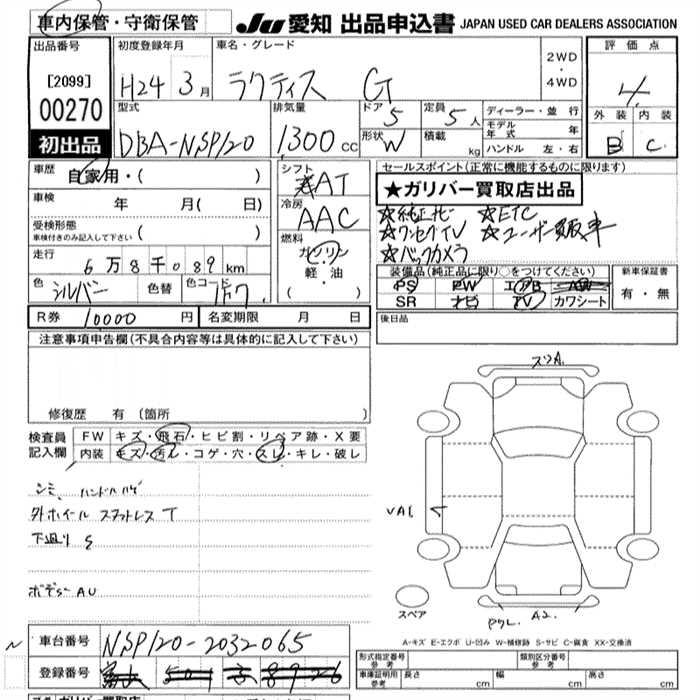 車内保管・守衛保管 JU 愛知 出品申込書 JAPAN USED CAR DEALERS ASSOCIATION
出品番号 初度登録年月 車名・グレード 2WD・4WD 評価点
[2099] H24 3月 ラクティス G 4
00270 型式 排気量 ドア 5 定員 5人 ディーラー・並行 外装 内装
初出品 DBA-NSP120 1300cc 形状 W 積載 kg モデル年式 年 B C
ハンドル 左・右
車歴 自家用・( ) シフト AT セールスポイント(正常に機能するものに限ります)
車検 年 月( 日) 冷房 AAC ★ガリバー買取店出品
受検形態 車検付きのみ記入して下さい ( ) 燃料 ガソリン 軽・油 ( ) ★純正ナビ ★ETC
★ワンセグTV ★ユーザー買取車
★バックカメラ
走行 6万8千089km 装備品(純正品に限り○をつけてください) 新車保証書
色 シルバー 色替 色コード 1F7 PS PW エアB AW 有・無
SR ナビ TV カワシート
R券 10000円 名変期限 月 日 後日品
注意事項申告欄(不具合内容等は具体的に記入して下さい)
修復歴 有 (箇所
検査員記入欄 FW キズ・飛石・ヒビ割・リペア跡・X要
内装 キズ・汚れ・コゲ・穴・スレ・キレ・破レ
シミ ハンドルハゲ
外ホイール スタットレス T
下廻り S
ボデー AU
スリA.
VAL
スペア
A2.
A-キズ E-エクボ U-凹み W-補修跡 S-サビ C-腐食 XX-交換済
車台番号 NSP120-2032065
登録番号 501 8926
形式指定番号 参考 類別区分番号 参考
車庫証明用 参考 長さ cm 幅 cm 高さ cm